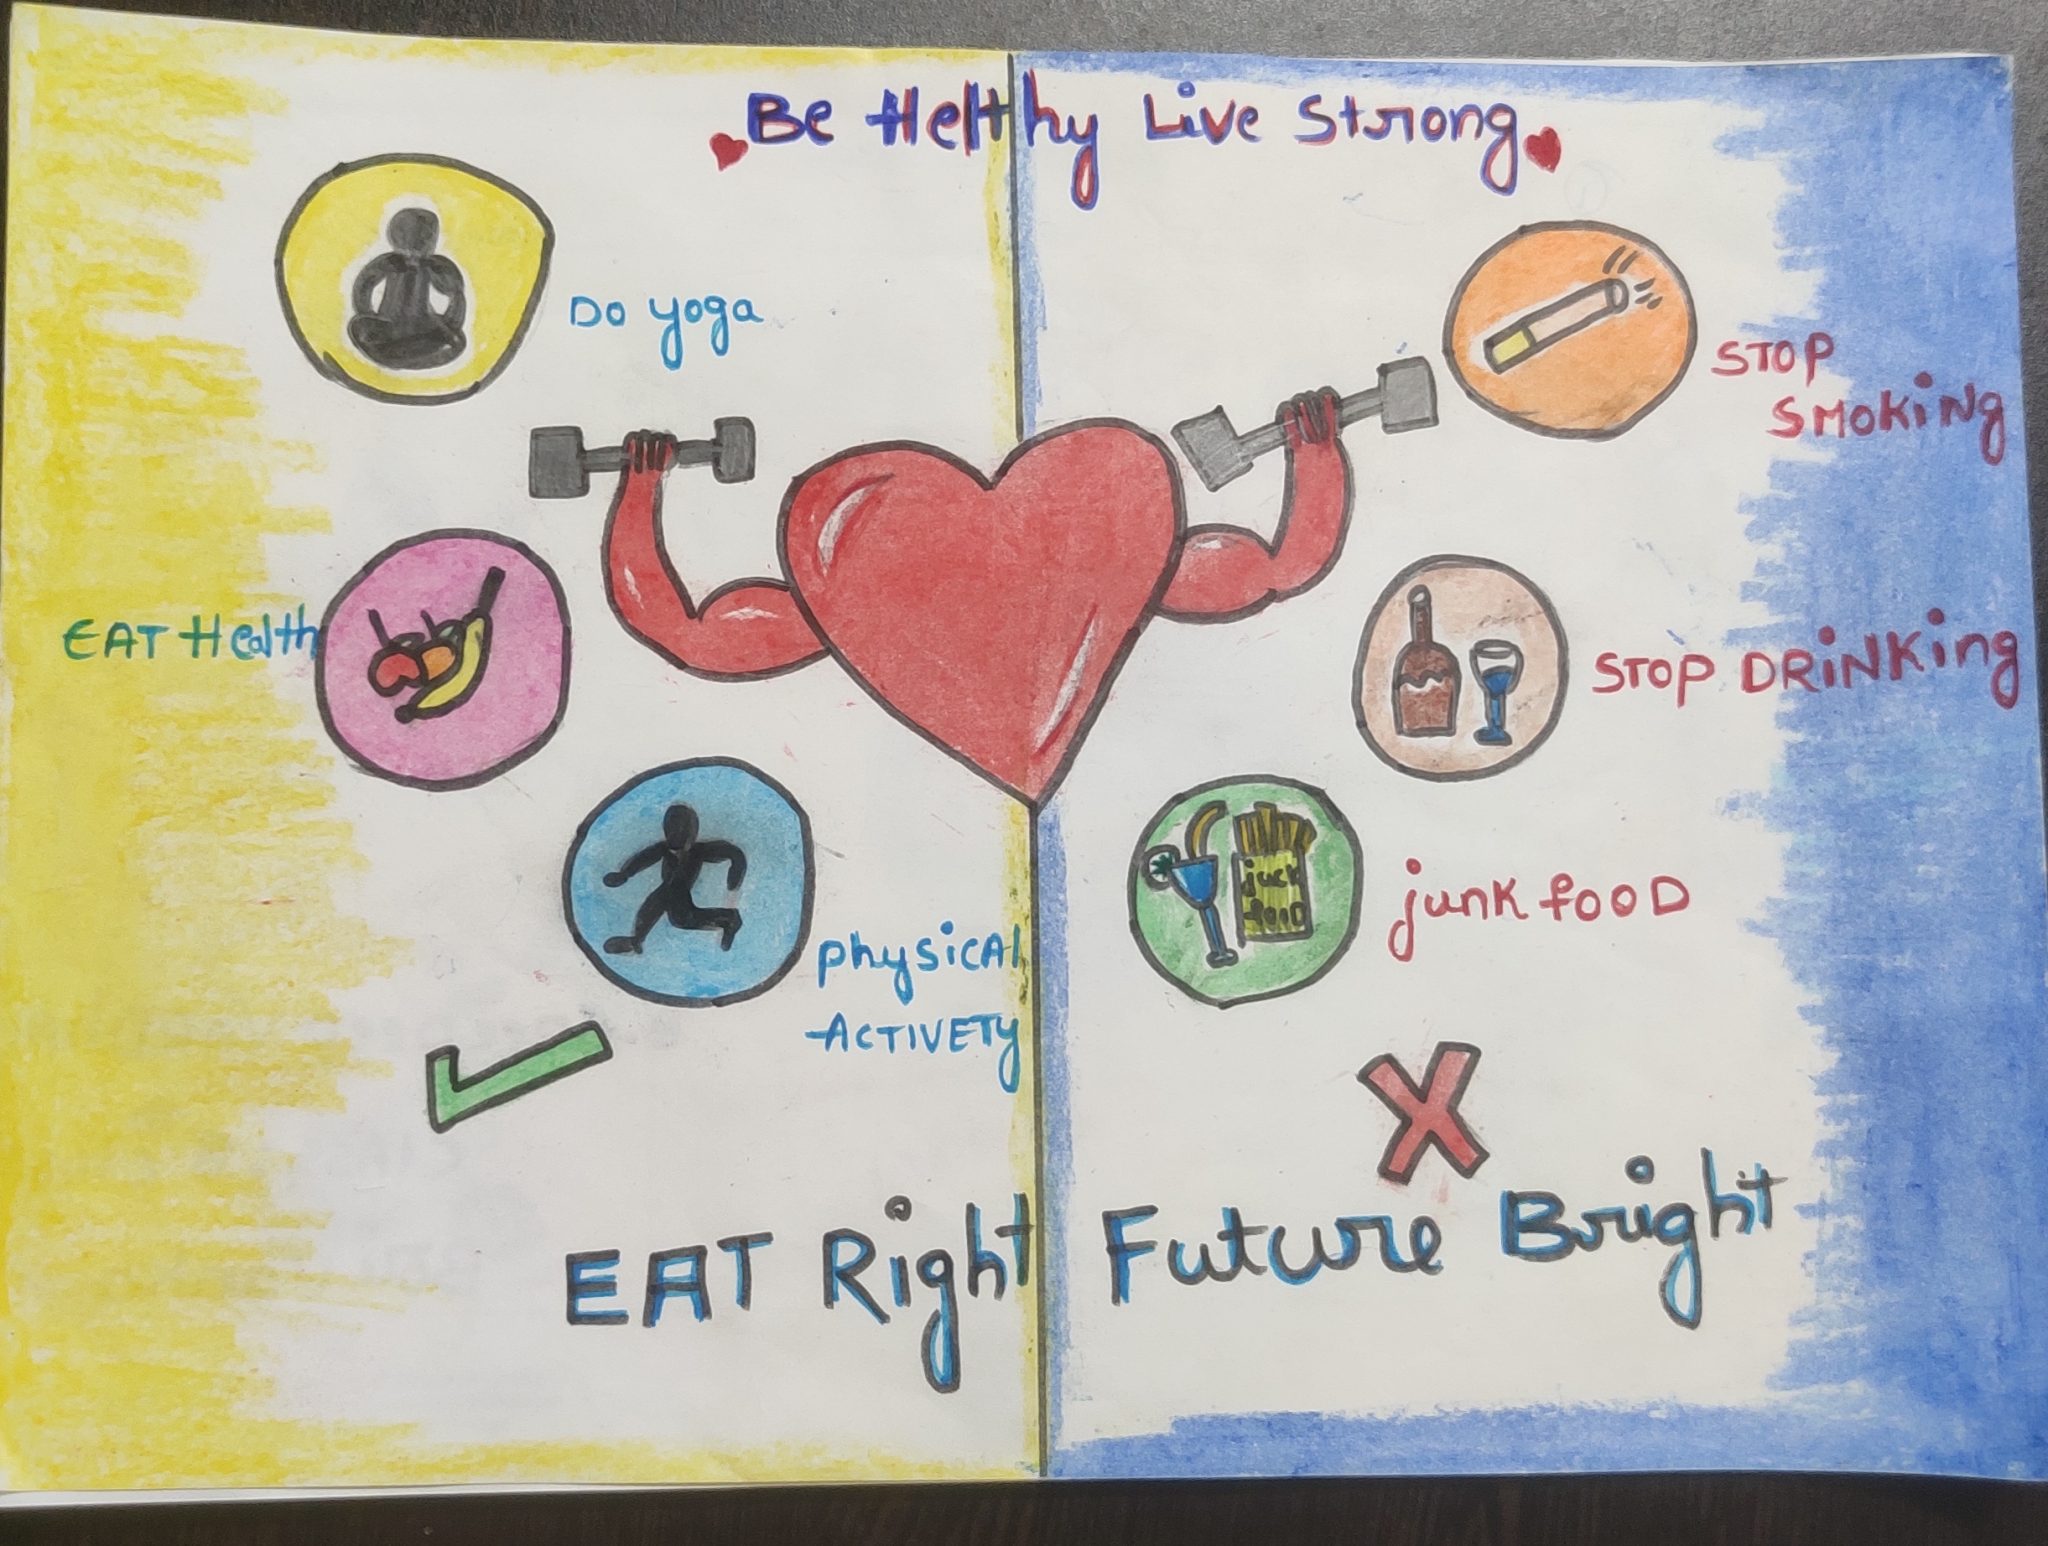 Be Helthy Live Strong
Do yoga
STOP
SMOKiNg
EAT Health
STOP DRiNKing
physicAl
ACTIVETY
junk fooD
juck
foiD
EAT Right Future Bright